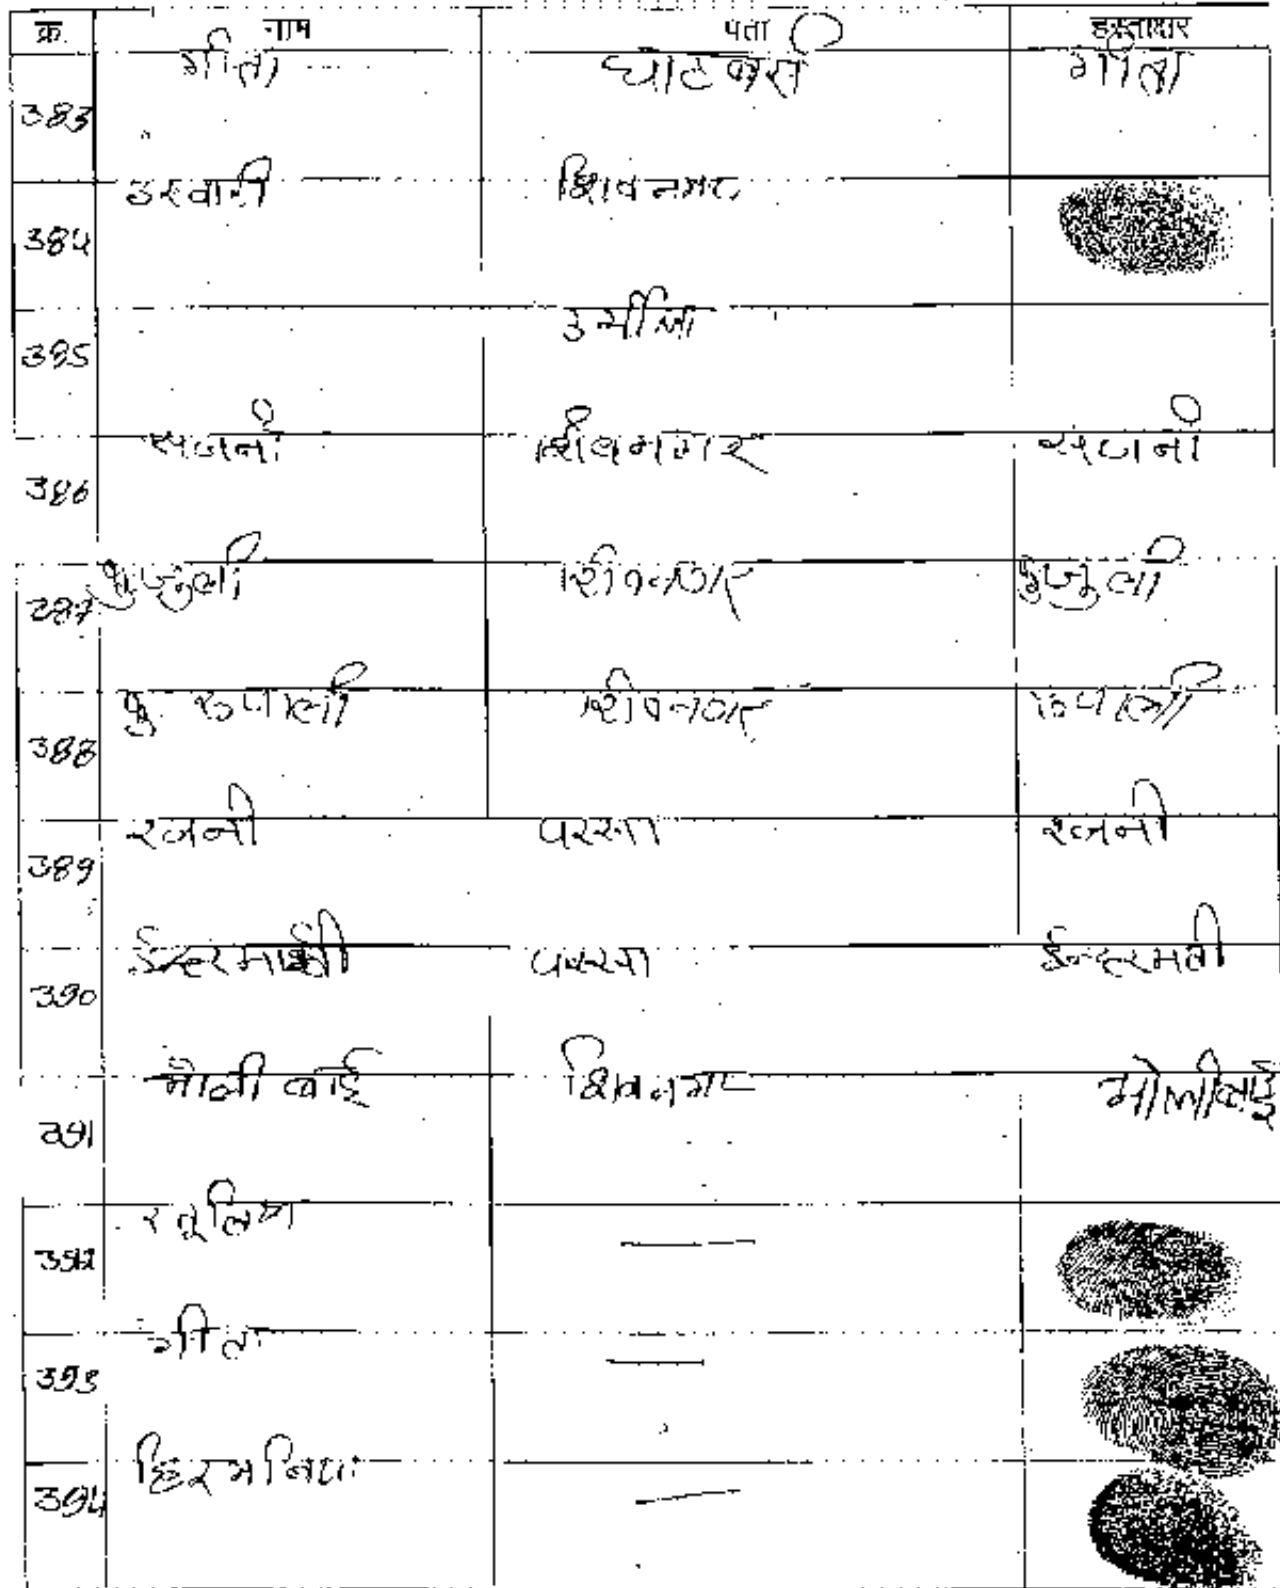 क्र. नाम पता हस्ताक्षर
383 गीता घाटबर्रा गीता
384 इस्वारी शिवनगर
385
386 सजनी शिवनगर सजनी
387 फुलजुली शिवनगर
388 कु रुपाली शिवनगर रुपाली
389 रजनी परसा रजनी
390 ईन्दरमती परसा ईन्दरमती
391 मोती बाई शिवनगर मोती बाई
392 —
393 गीता —
394 हिरमनिया —